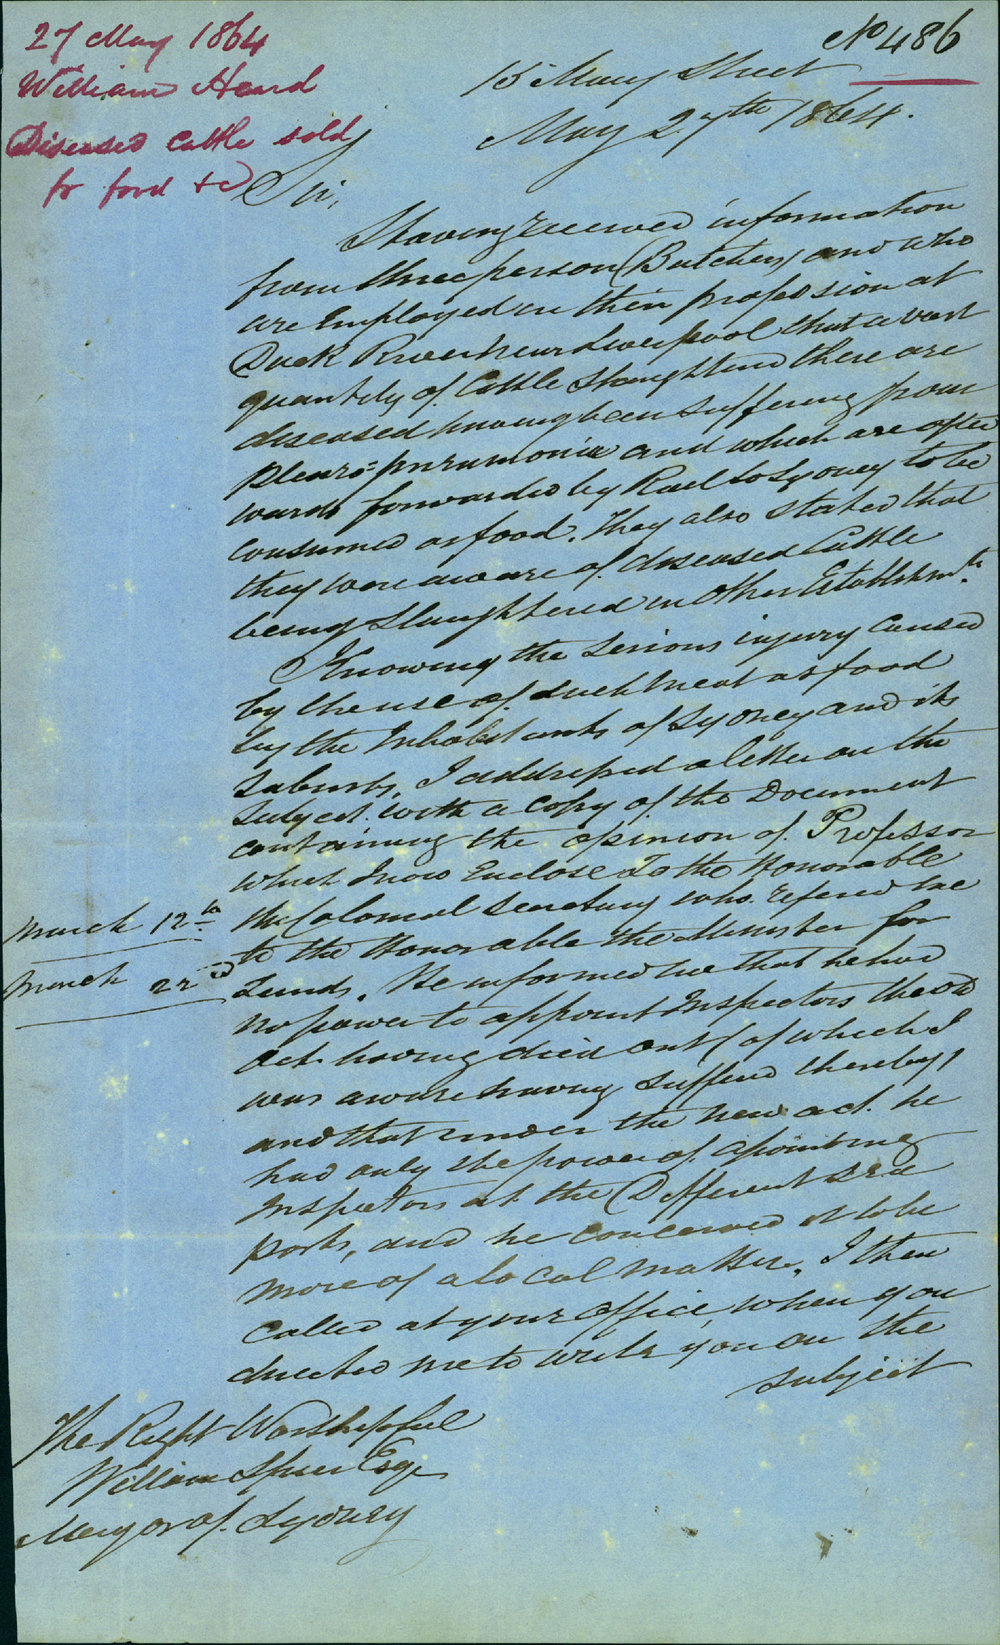 27 May 1864
William Heard
Diseased Cattle sold
for food &c
No 486
15 Mary Street
May 27th 1864.
Sir,
Having received information
from three person (Butchers) and who
are Employed in their profession at
Duck River near Liverpool that a vast
quantity of Cattle Slaughtered there are
diseased having been suffering from
pleuro=pneumonia and which are after
wards forwarded by Rail to Sydney to be
consumed as food. They also stated that
they were aware of diseased Cattle
being Slaughtered in other Establishmts.
Knowing the serious injury caused
by the use of such meat as food
by the Inhabitants of Sydney and its
suburbs, I addressed a letter on the
subject with a copy of the Document
containing the opinion of Professor
which I now Enclose To the Honorable
the Colonial Secretary who refered me
to the Honorable the Minister for
Lands. He informed me that he had
no power to appoint Inspectors the old
act having died out (of which I
was aware having suffered thereby)
and that under the new act he
had only the power of apointing
Inspectors at the Different Sea
ports, and he conceived it to be
more of a local matter, I then
called at your office, when you
directed me to write you on the
subject
March 12th
March 22d
The Right Worshipful
William Speer Esqe
Mayor of Sydney